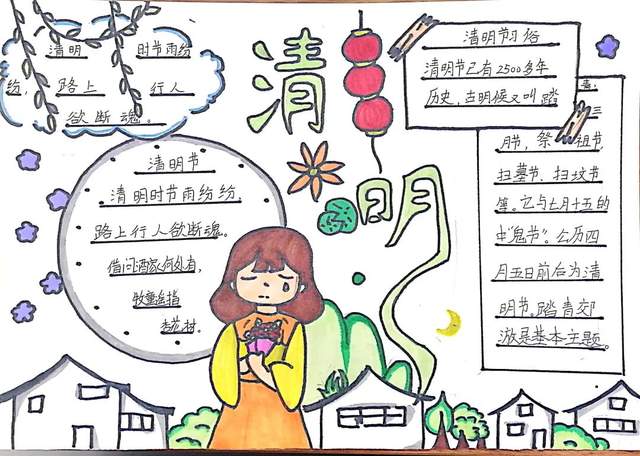 清明 时节雨纷
纷, 路上 行人
欲断魂。
清明
清明节
清明时节雨纷纷,
路上行人欲断魂。
借问酒家何处有,
牧童遥指
杏花村。
清明节习俗
清明节已有2500多年
历史,古明候又叫踏
三
月节,祭 祖节,
扫墓节、扫坟节
等。它与七月十五的
中"鬼节"。公历四
月五日前后为清
明节。踏青郊
游是基本主题。